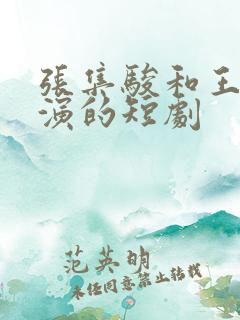 張集駿和王
演的短劇
范英明
未经同意禁止转载